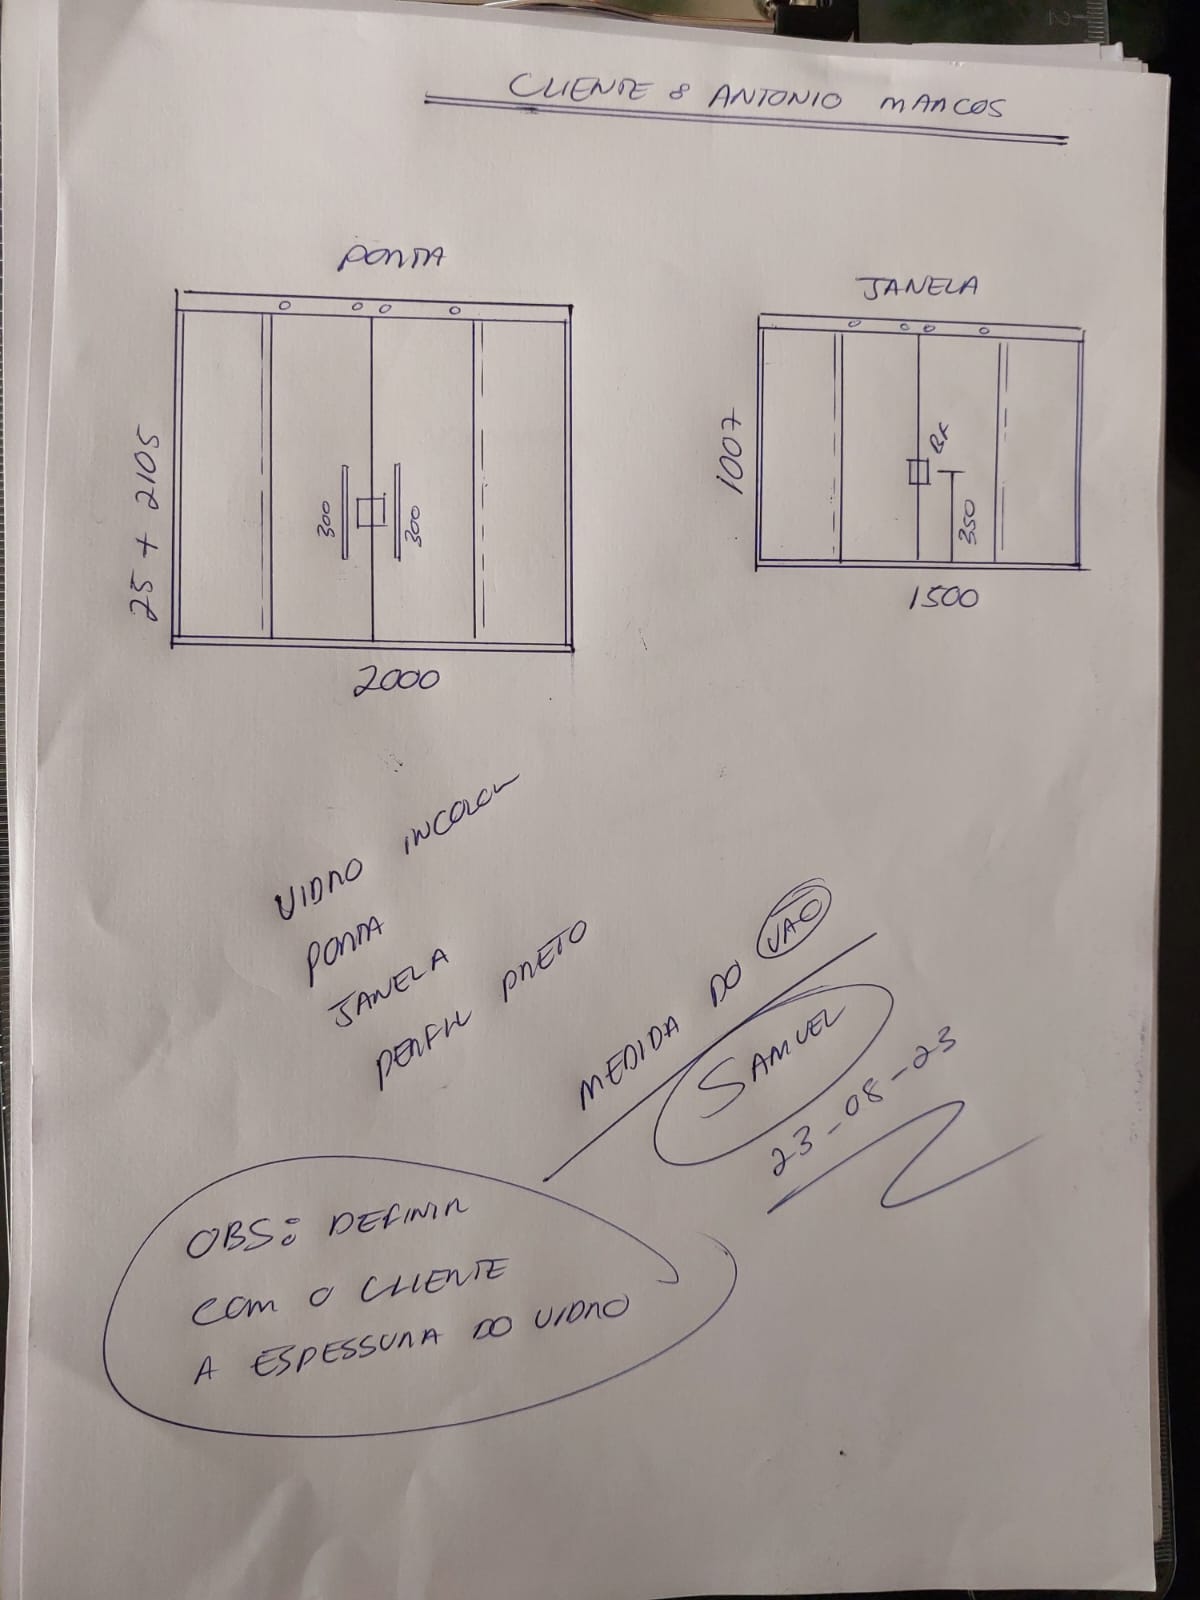 CLIENTE : ANTONIO MARCOS
PORTA
25 + 2105
300
300
2000
JANELA
1007
BX
350
1500
VIDRO INCOLOR
PORTA
JANELA
PERFIL PRETO
MEDIDA DO VÃO
SAMUEL
23-08-23
OBS: DEFINIR
COM O CLIENTE
A ESPESSURA DO VIDRO